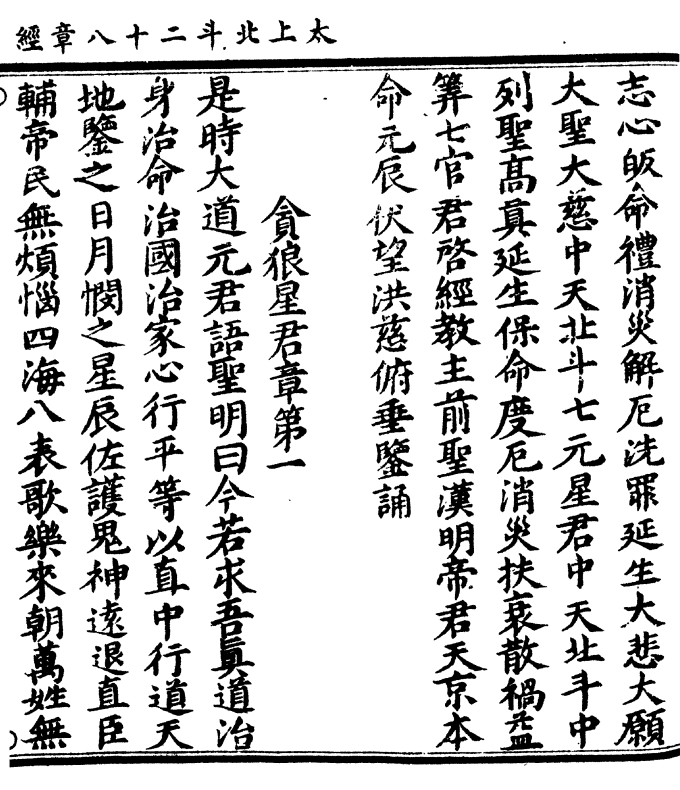 太上北斗二十八章經
志心皈命禮消災解厄洗罪延生大悲大願
大聖大慈中天北斗七元星君中天北斗中
列聖高真延生保命度厄消災扶衰散禍益
筭七官君啓經教主前聖漢明帝君天京本
命元辰伏望洪慈俯垂鑒誦
貪狼星君章第一
是時大道元君語聖明曰今若求吾真道治
身治命治國治家心行平等以直中行道天
地鑒之日月憫之星辰佐護鬼神遠退直臣
輔帝民無煩惱四海八表歌樂來朝萬姓無